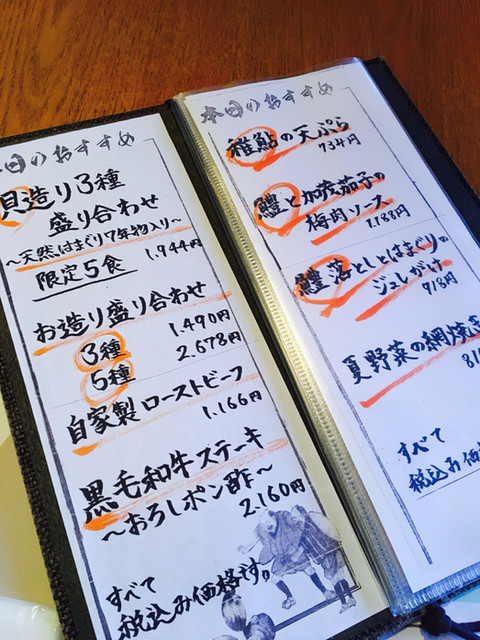 本日のおすすめ
貝造り3種
盛り合わせ
〜天然はまぐり7年物入り〜
限定5食 1.944円
お造り盛り合わせ
3種 1.490円
5種 2.678円
自家製ローストビーフ
1.166円
黒毛和牛ステーキ
〜おろしポン酢〜
2.160円
すべて
税込み価格です。
本日のおすすめ
稚鮎の天ぷら
734円
鱧と加茂茄子の
梅肉ソース
1.188円
鱧落としとはまぐりの
ジュレがけ
918円
夏野菜の網焼き
81
すべて
税込み価